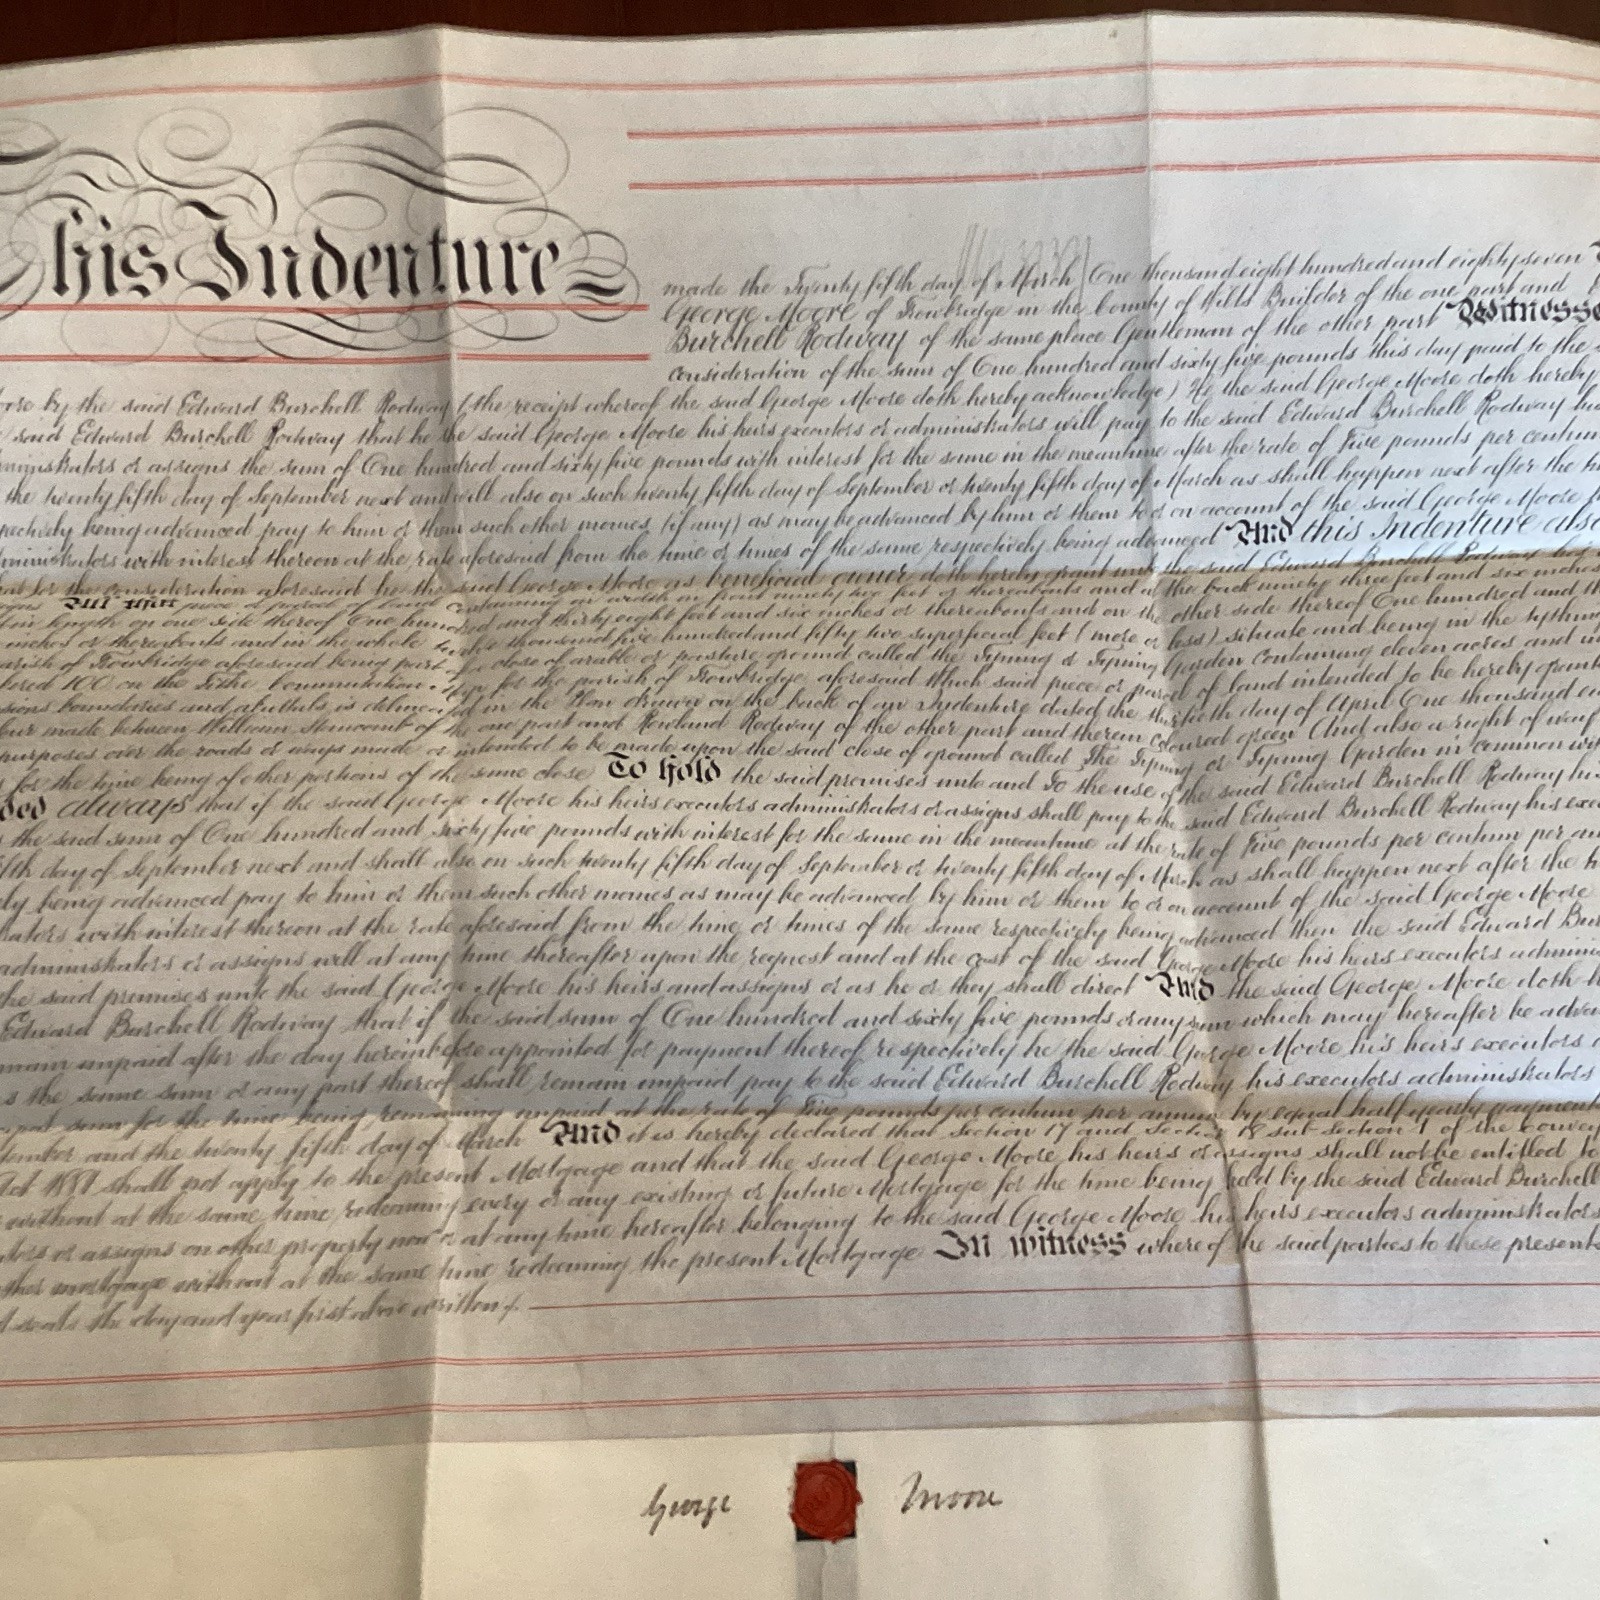 his Indenture
made the Twenty fifth day of March One thousand eight hundred and eighty seven
George Moore of Trowbridge in the County of Wilts Builder of the one part and
Burchell Rodway of the same place Gentleman of the other part Witnesse
consideration of the sum of One hundred and sixty five pounds this day paid to the
ore by the said Edward Burchell Rodway (the receipt whereof the said George Moore doth hereby acknowledge) He the said George Moore doth hereby
said Edward Burchell Rodway that he the said George Moore his heirs executors or administrators will pay to the said Edward Burchell Rodway his
ministrators or assigns the sum of One hundred and sixty five pounds with interest for the same in the meantime after the rate of Five pounds per centum
the twenty fifth day of September next and will also on such twenty fifth day of September or twenty fifth day of March as shall happen next after the
pectively being advanced pay to him or them such other monies (if any) as may be advanced by him or them to or on account of the said George Moore
ministrators with interest thereon at the rate aforesaid from the time or times of the same respectively being advanced And this Indenture also
that for the consideration aforesaid he the said George Moore as beneficial owner doth hereby grant unto the said Edward Burchell Rodway his
All that piece or parcel of land containing in width on front ninety two feet or thereabouts and at the back ninety three feet and six inches
in length on one side thereof One hundred and thirty eight feet and six inches or thereabouts and on the other side thereof One hundred and
inches or thereabouts and in the whole twelve thousand five hundred and fifty two superficial feet (more or less) situate and being in the tything
arish of Trowbridge aforesaid being part of a close of arable or pasture ground called the Tyning or Tyning Garden containing eleven acres and
bered 100 on the Tithe Commutation Map for the parish of Trowbridge aforesaid Which said piece or parcel of land intended to be hereby granted
sions boundaries and abuttals is delineated in the Plan drawn on the back of an Indenture dated the thirtieth day of April One thousand
four made between William Stancomb of the one part and Rowland Rodway of the other part and therein coloured green And also a right of way
purposes over the roads or ways made or intended to be made upon the said close of ground called The Tyning or Tyning Garden in common with
for the time being of other portions of the same close To hold the said premises unto and To the use of the said Edward Burchell Rodway his
ded always that if the said George Moore his heirs executors administrators or assigns shall pay to the said Edward Burchell Rodway his exec
the said sum of One hundred and sixty five pounds with interest for the same in the meantime at the rate of Five pounds per centum per an
fth day of September next and shall also on such twenty fifth day of September or twenty fifth day of March as shall happen next after the
ly being advanced pay to him or them such other monies as may be advanced by him or them to or on account of the said George Moore
rators with interest thereon at the rate aforesaid from the time or times of the same respectively being advanced then the said Edward Bur
administrators or assigns will at any time thereafter upon the request and at the cost of the said George Moore his heirs executors adminis
the said premises unto the said George Moore his heirs and assigns or as he or they shall direct And the said George Moore doth h
Edward Burchell Rodway that if the said sum of One hundred and sixty five pounds or any sum which may hereafter be advan
main unpaid after the day hereinbefore appointed for payment thereof respectively he the said George Moore his heirs executors
as the same sum or any part thereof shall remain unpaid pay to the said Edward Burchell Rodway his executors administrators
cipal sum for the time being remaining unpaid at the rate of Five pounds per centum per annum by equal half yearly payments
tember and the twenty fifth day of March And it is hereby declared that Section 17 and Section 18 sub-section 1 of the Convey
Act 1881 shall not apply to the present Mortgage and that the said George Moore his heirs or assigns shall not be entitled to
without at the same time redeeming every or any existing or future Mortgage for the time being held by the said Edward Burchell
tors or assigns on other property now or at any time hereafter belonging to the said George Moore his heirs executors administrators
ther mortgage without at the same time redeeming the present Mortgage In witness whereof the said parties to these presents
d seals the day and year first above written
George Moore